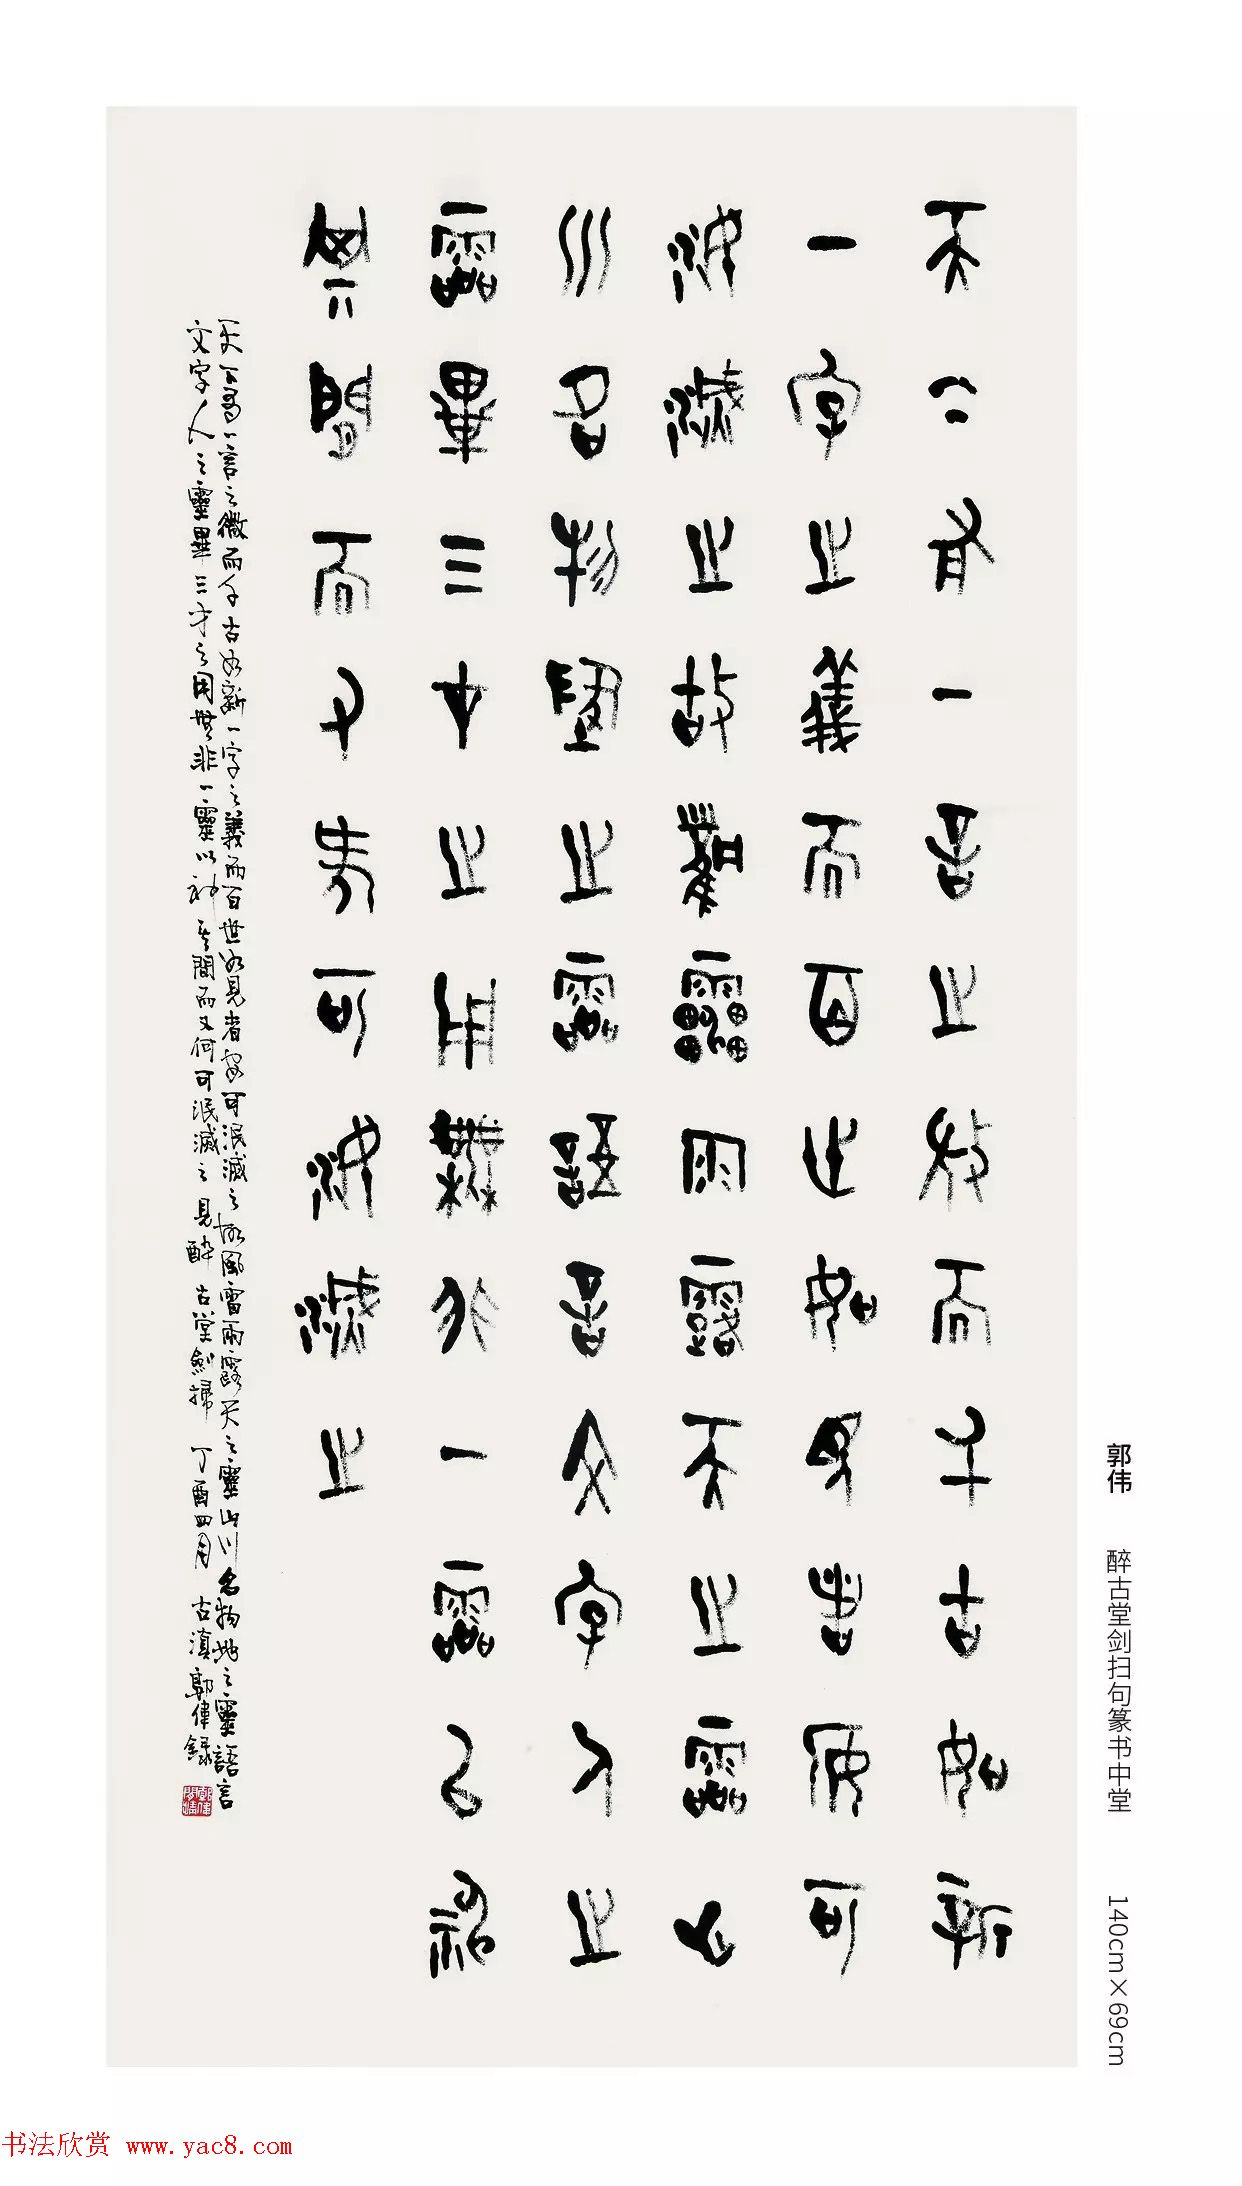 天下有一言之微而千古如新
一字之義而百世如見者安可
泯滅之故風雷雨露天之靈山
川名物地之靈語言文字人之
靈畢三才之用無非一靈以神
其間而又何可泯滅之
天下有一言之微而千古如新一字之義而百世如見者安可泯滅之故風雷雨露天之靈山川名物地之靈語言
文字人之靈畢三才之用無非一靈以神其間而又何可泯滅之見醉古堂劍掃 丁酉四月 古滇郭偉錄
郭伟 醉古堂剑扫句篆书中堂 140cm×69cm
书法欣赏 www.yac8.com